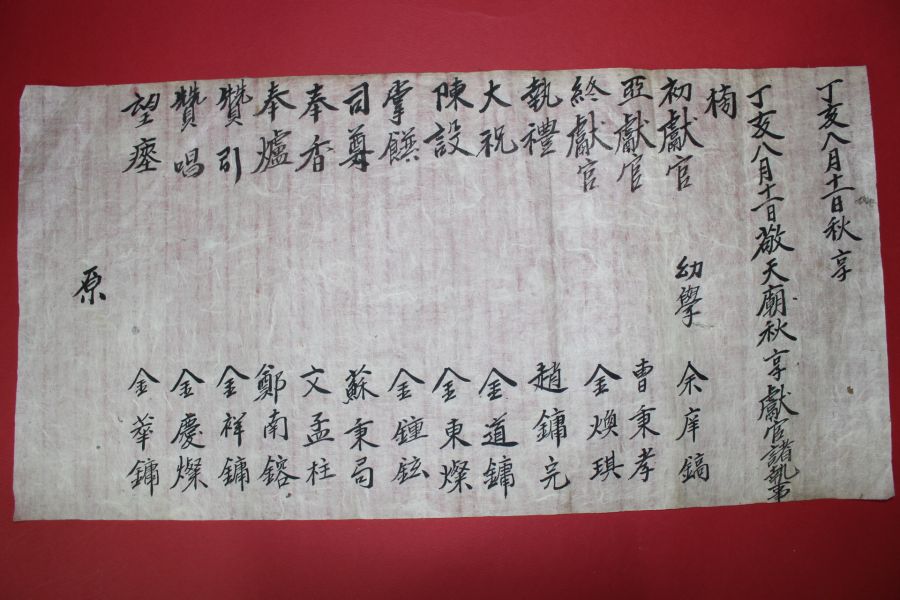 丁亥八月十一日秋享
丁亥八月十一日敬天廟秋享獻官諸執事
初獻官 幼學 余庠鎬
亞獻官 曹秉孝
終獻官 金煥琪
執禮 趙鏞完
大祝 金道鏞
陳設 金東燦
掌饌 金鍾鉉
司尊 蘇秉局
奉香 文孟柱
奉爐 鄭南鎔
贊引 金祥鏞
贊唱 金慶燦
望瘞 金華鏞
原